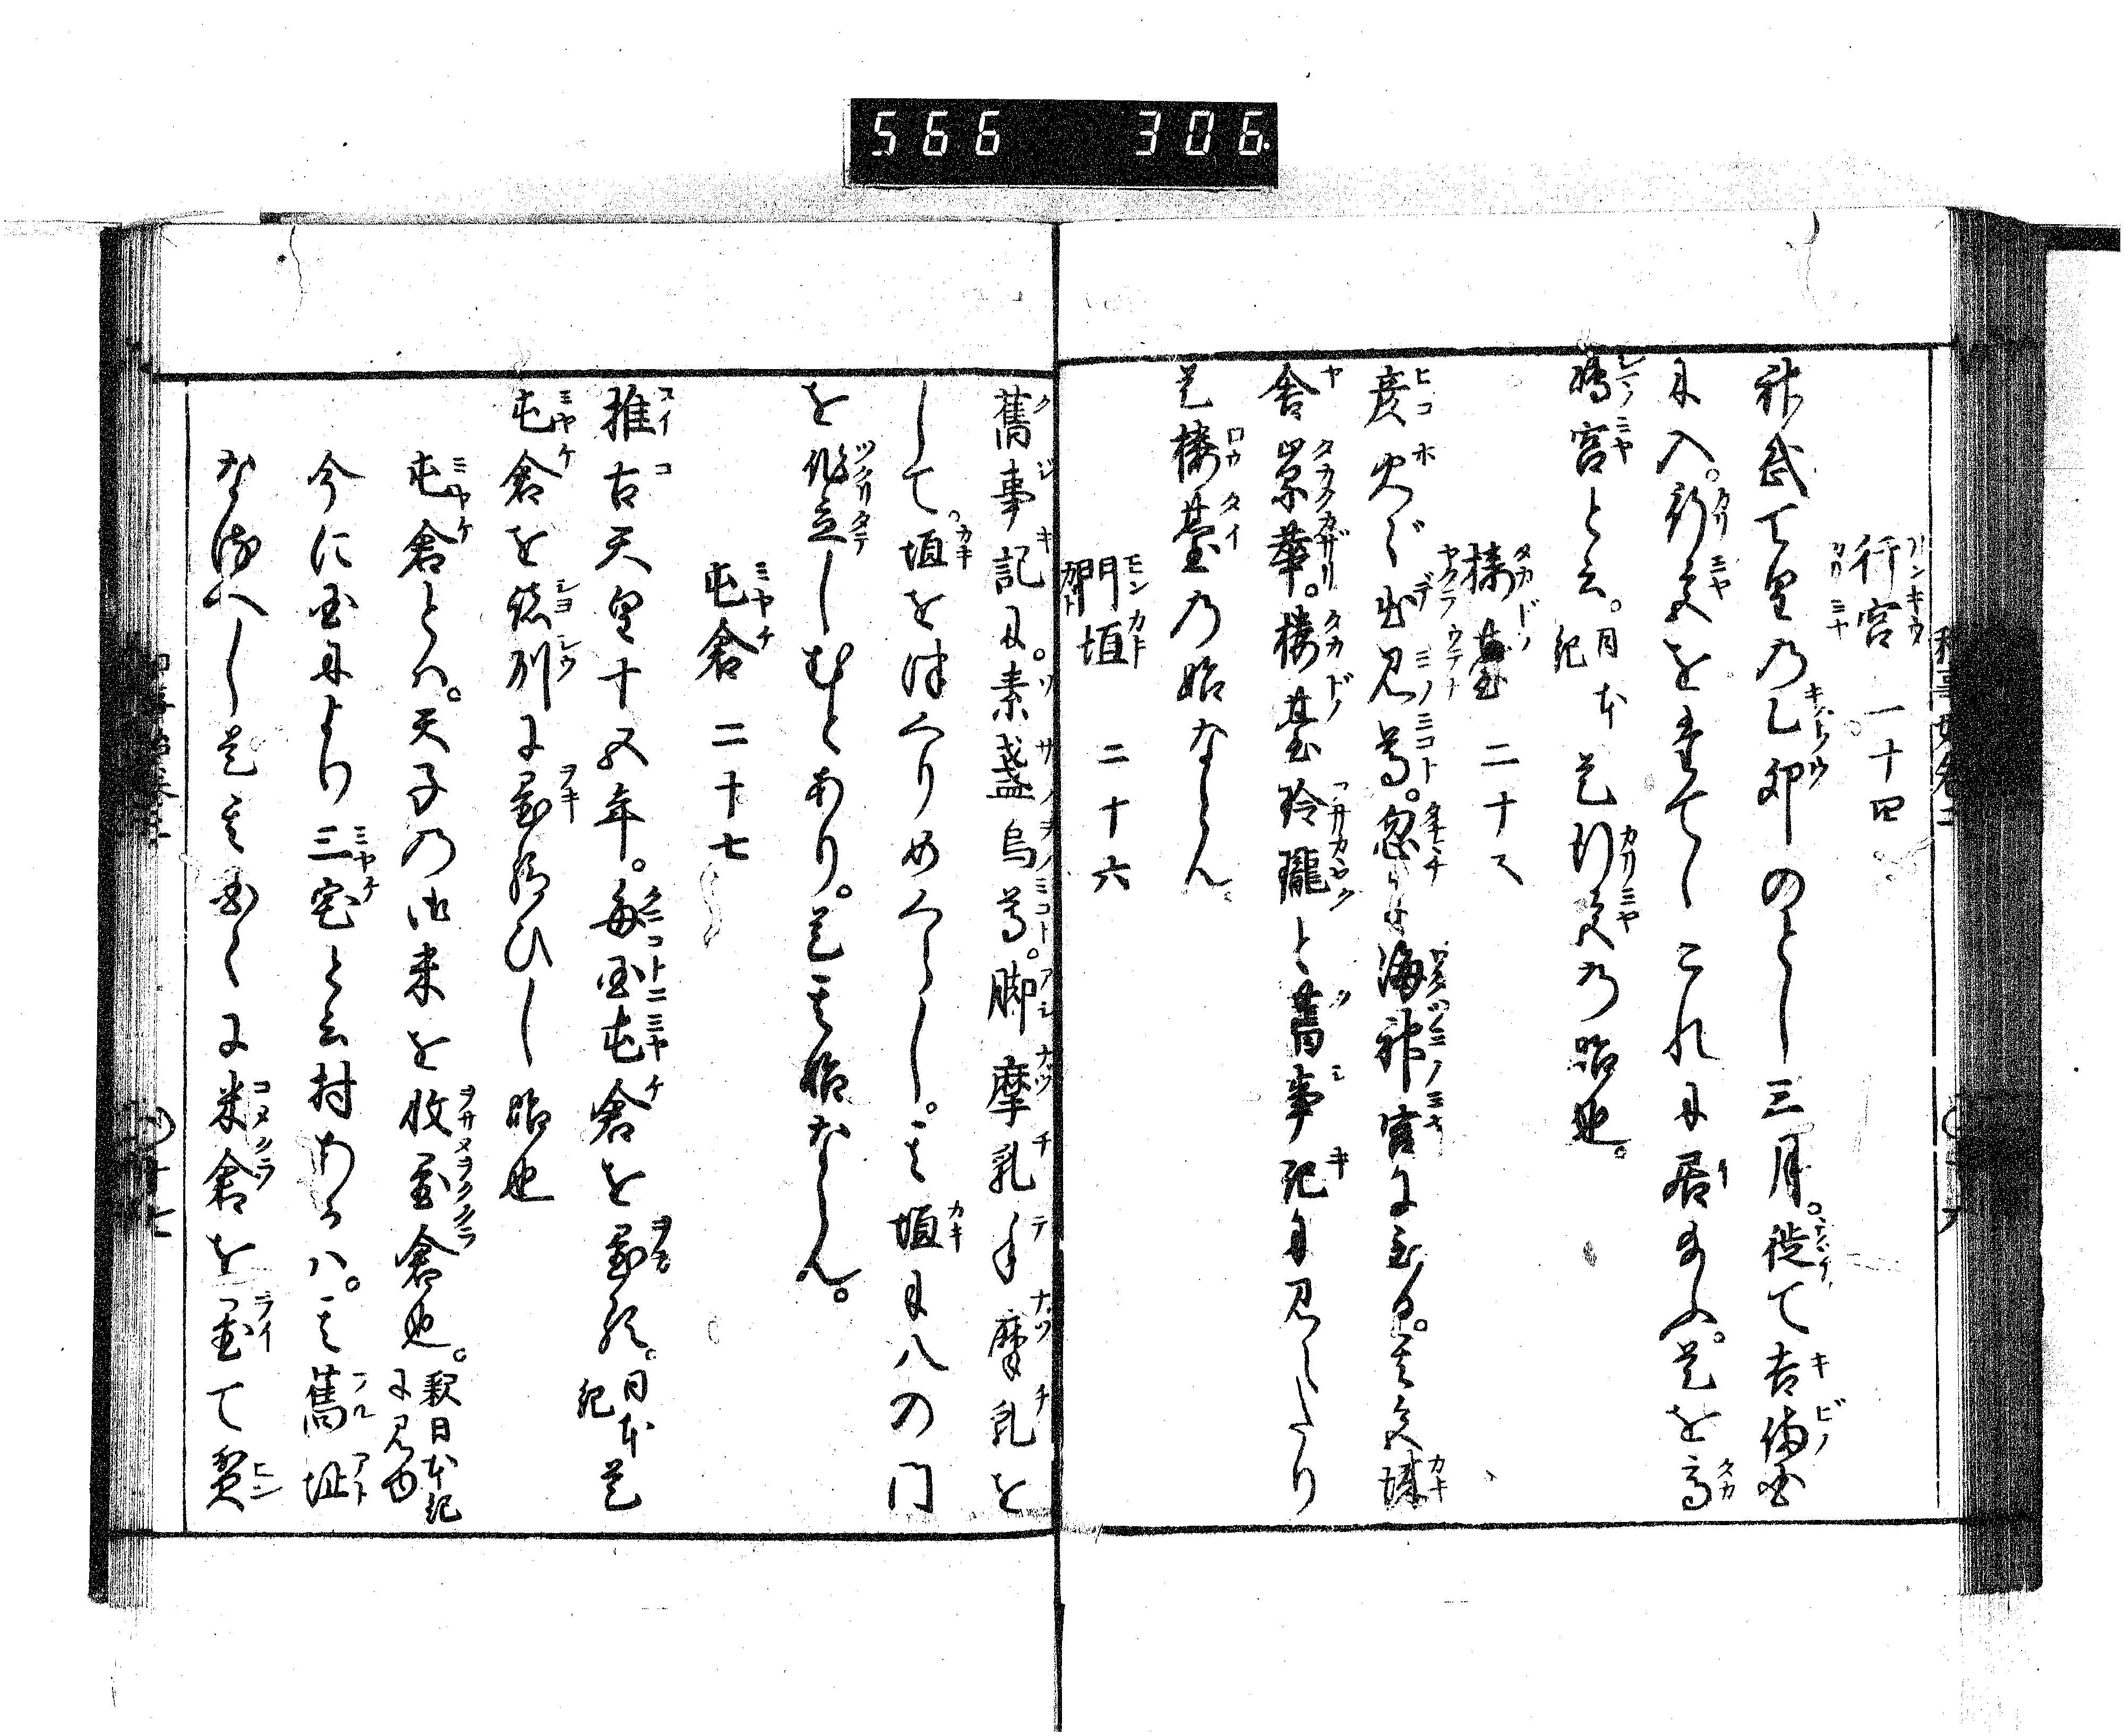 566 306
行宮 二十四
神武天皇乃乙卯のとし三月。徙て吉備国
に入。行宮を たてゝ これに居給ふ。是を高
嶋宮と云。日本紀 是行宮の始也。
楼臺 二十五
彦火〻出見尊。忽に海神宮に至る。其宮城
舎崇華。楼臺玲瓏と舊事紀に見えたり
是楼臺乃始ならん
門垣 二十六
舊事記に。素盞烏尊。脚摩乳手摩乳を
して。垣を作りめくらし。其垣に八の門
を作立しむとあり。是其始ならん。
屯倉 二十七
推古天皇十五年。毎国屯倉を置。日本紀 是
屯倉を諸州に置給ひし始也
屯倉とハ。天子乃御米を收置倉也。釈日本紀に見ゆ
今に国により三宅と云村あるハ。其舊址
なるへし是其国〻に米倉を置て